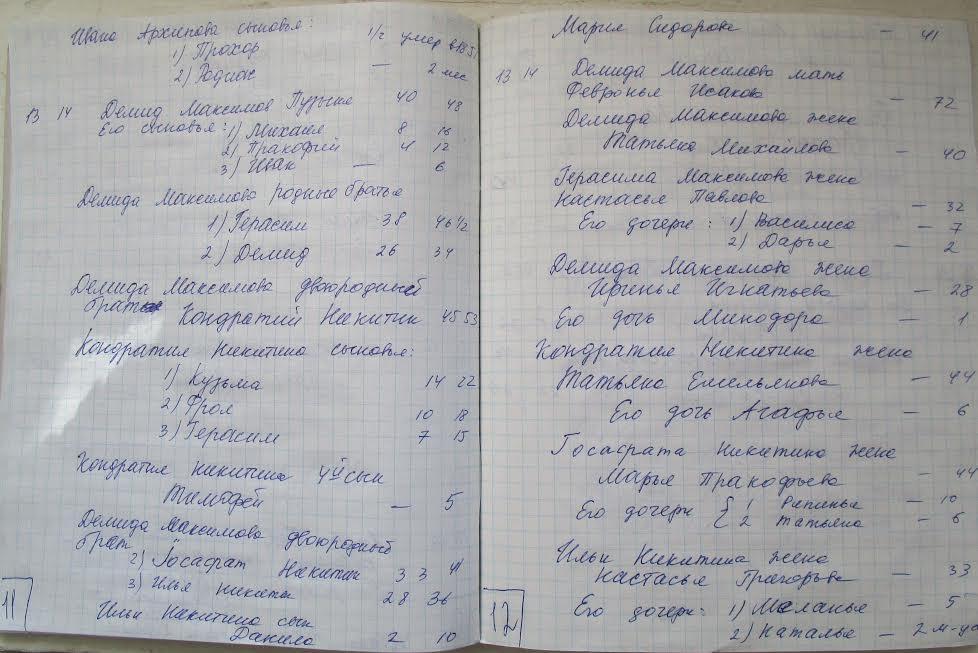 Ивана Архипова сыновья:
1) Прохор 1/2 умер в 1851
2) Родион — 2 мес
13 14 Демид Максимов Пузыня 40 48
Его сыновья: 1) Михаил 8 16
2) Пракофей 4 12
3) Иван — 6
Демида Максимова родные братья
1) Герасим 38 46 1/2
2) Демид 26 34
Демида Максимова двоюродный
брат Кондратий Никитин 45 53
Кондратия Никитина сыновья:
1) Кузьма 14 22
2) Фрол 10 18
3) Герасим 7 15
Кондратия Никитина 4й сын
Тимофей — 5
Демида Максимова двоюродный
брат 2) Госафрат Никитин 33 41
3) Илья Никитин 28 36
Ильи Никитина сын
Данила 2 10
11
Марья Сидорова — 41
13 14 Демида Максимова мать
Февронья Исакова — 72
Демида Максимова жена
Татьяна Михайлова — 40
Герасима Максимова жена
Настасья Павлова — 32
Его дочери: 1) Василиса — 7
2) Дарья — 2
Демида Максимова жена
Иринья Игнатьева — 28
Его дочь Минодора — 1
Кондратия Никитина жена
Татьяна Емельянова — 44
Его дочь Агафья — 6
Госафрата Никитина жена
Марья Пракофьева — 44
Его дочери { 1 — 10
2 Татьяна — 6
Ильи Никитина жена
Настасья Григорьва — 33
Его дочери: 1) Меланья — 5
2) Наталья — 2 м-ца
12